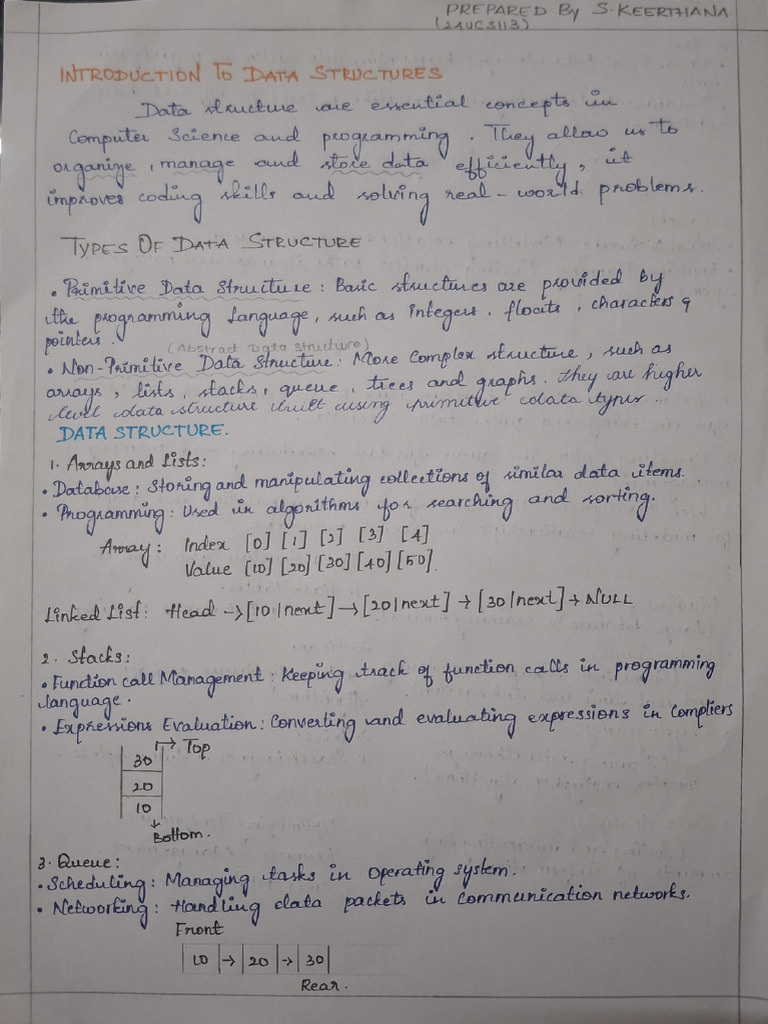 PREPARED By S. KEERTHANA
(24UCS113)
INTRODUCTION TO DATA STRUCTURES
Data structure are essential concepts in
Computer Science and programming. They allow us to
organize, manage and store data efficiently, it
improves coding skills and solving real-world problems.
TYPES OF DATA STRUCTURE
• Primitive Data Structure: Basic structures are provided by
the programming language, such as integers, floats, characters &
pointers.
(Abstract Data Structure)
• Non-Primitive Data Structure: More complex structure, such as
arrays, lists, stacks, queue, trees and graphs. They are higher
level data structure built using primitive data types.
DATA STRUCTURE.
1. Arrays and Lists:
• Database: Storing and manipulating collections of similar data items.
• Programming: Used in algorithms for searching and sorting.
Array: Index [0] [1] [2] [3] [4]
Value [10] [20] [30] [40] [50].
Linked List: Head → [10|next] → [20|next] → [30|next] → NULL
2. Stacks:
• Function call Management: Keeping track of function calls in programming
language.
• Expressions Evaluation: Converting and evaluating expressions in compliers
→ Top
30
20
10
Bottom.
3. Queue:
• Scheduling: Managing tasks in operating system.
• Networking: Handling data packets in communication networks.
Front
10 → 20 → 30
Rear.